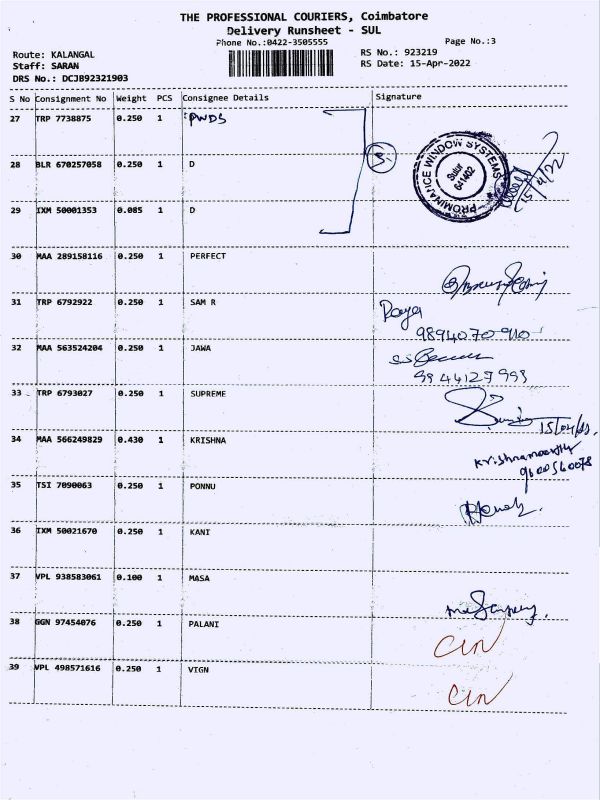 THE PROFESSIONAL COURIERS, Coimbatore
Delivery Runsheet - SUL
Phone No.:0422-3505555
Page No.:3
Route: KALANGAL
RS No.: 923219
Staff: SARAN
RS Date: 15-Apr-2022
DRS No.: DCJB92321903
S No Consignment No Weight PCS Consignee Details Signature
27 TRP 7738875 0.250 1 PWDS
PROMINANCE WINDOW SYSTEMS
Sulur
641402
15/4/22
28 BLR 670257058 0.250 1 D
29 IXM 50001353 0.085 1 D
30 MAA 289158116 0.250 1 PERFECT
31 TRP 6792922 0.250 1 SAM R
9894070910
32 MAA 563524204 0.250 1 JAWA
9944127993
33 TRP 6793027 0.250 1 SUPREME
34 MAA 566249829 0.430 1 KRISHNA
Krishnamoorthy
9600560078
35 TSI 7090063 0.250 1 PONNU
36 IXM 50021670 0.250 1 KANI
37 VPL 938583061 0.100 1 MASA
38 GGN 97454076 0.250 1 PALANI
39 VPL 498571616 0.250 1 VIGN